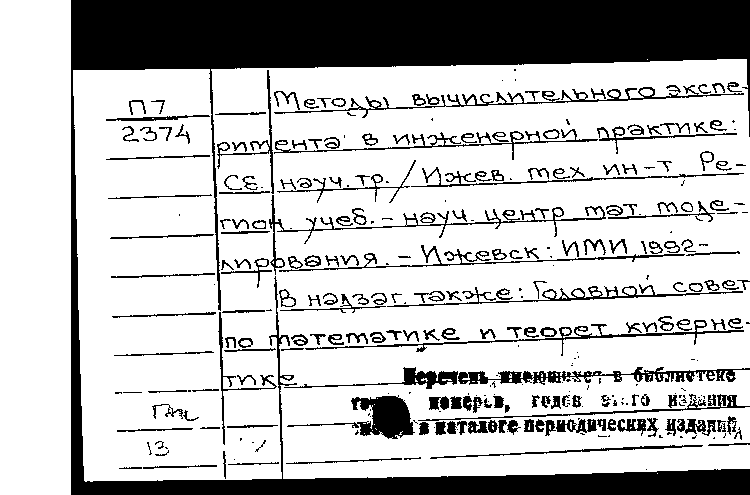 П7
2374
Методы вычислительного экспе-
римента в инженерной практике:
Сб. науч. тр. / Ижев. тех. ин-т, Ре-
гион. учеб.-науч. центр мат. моде-
лирования. - Ижевск: ИМИ, 1992-
В надзаг. также: Головной совет
по математике и теорет. киберне-
тике.
Перечень имеющихся в библиотеке
номеров, годов этого издания
в каталоге периодических изданий
13